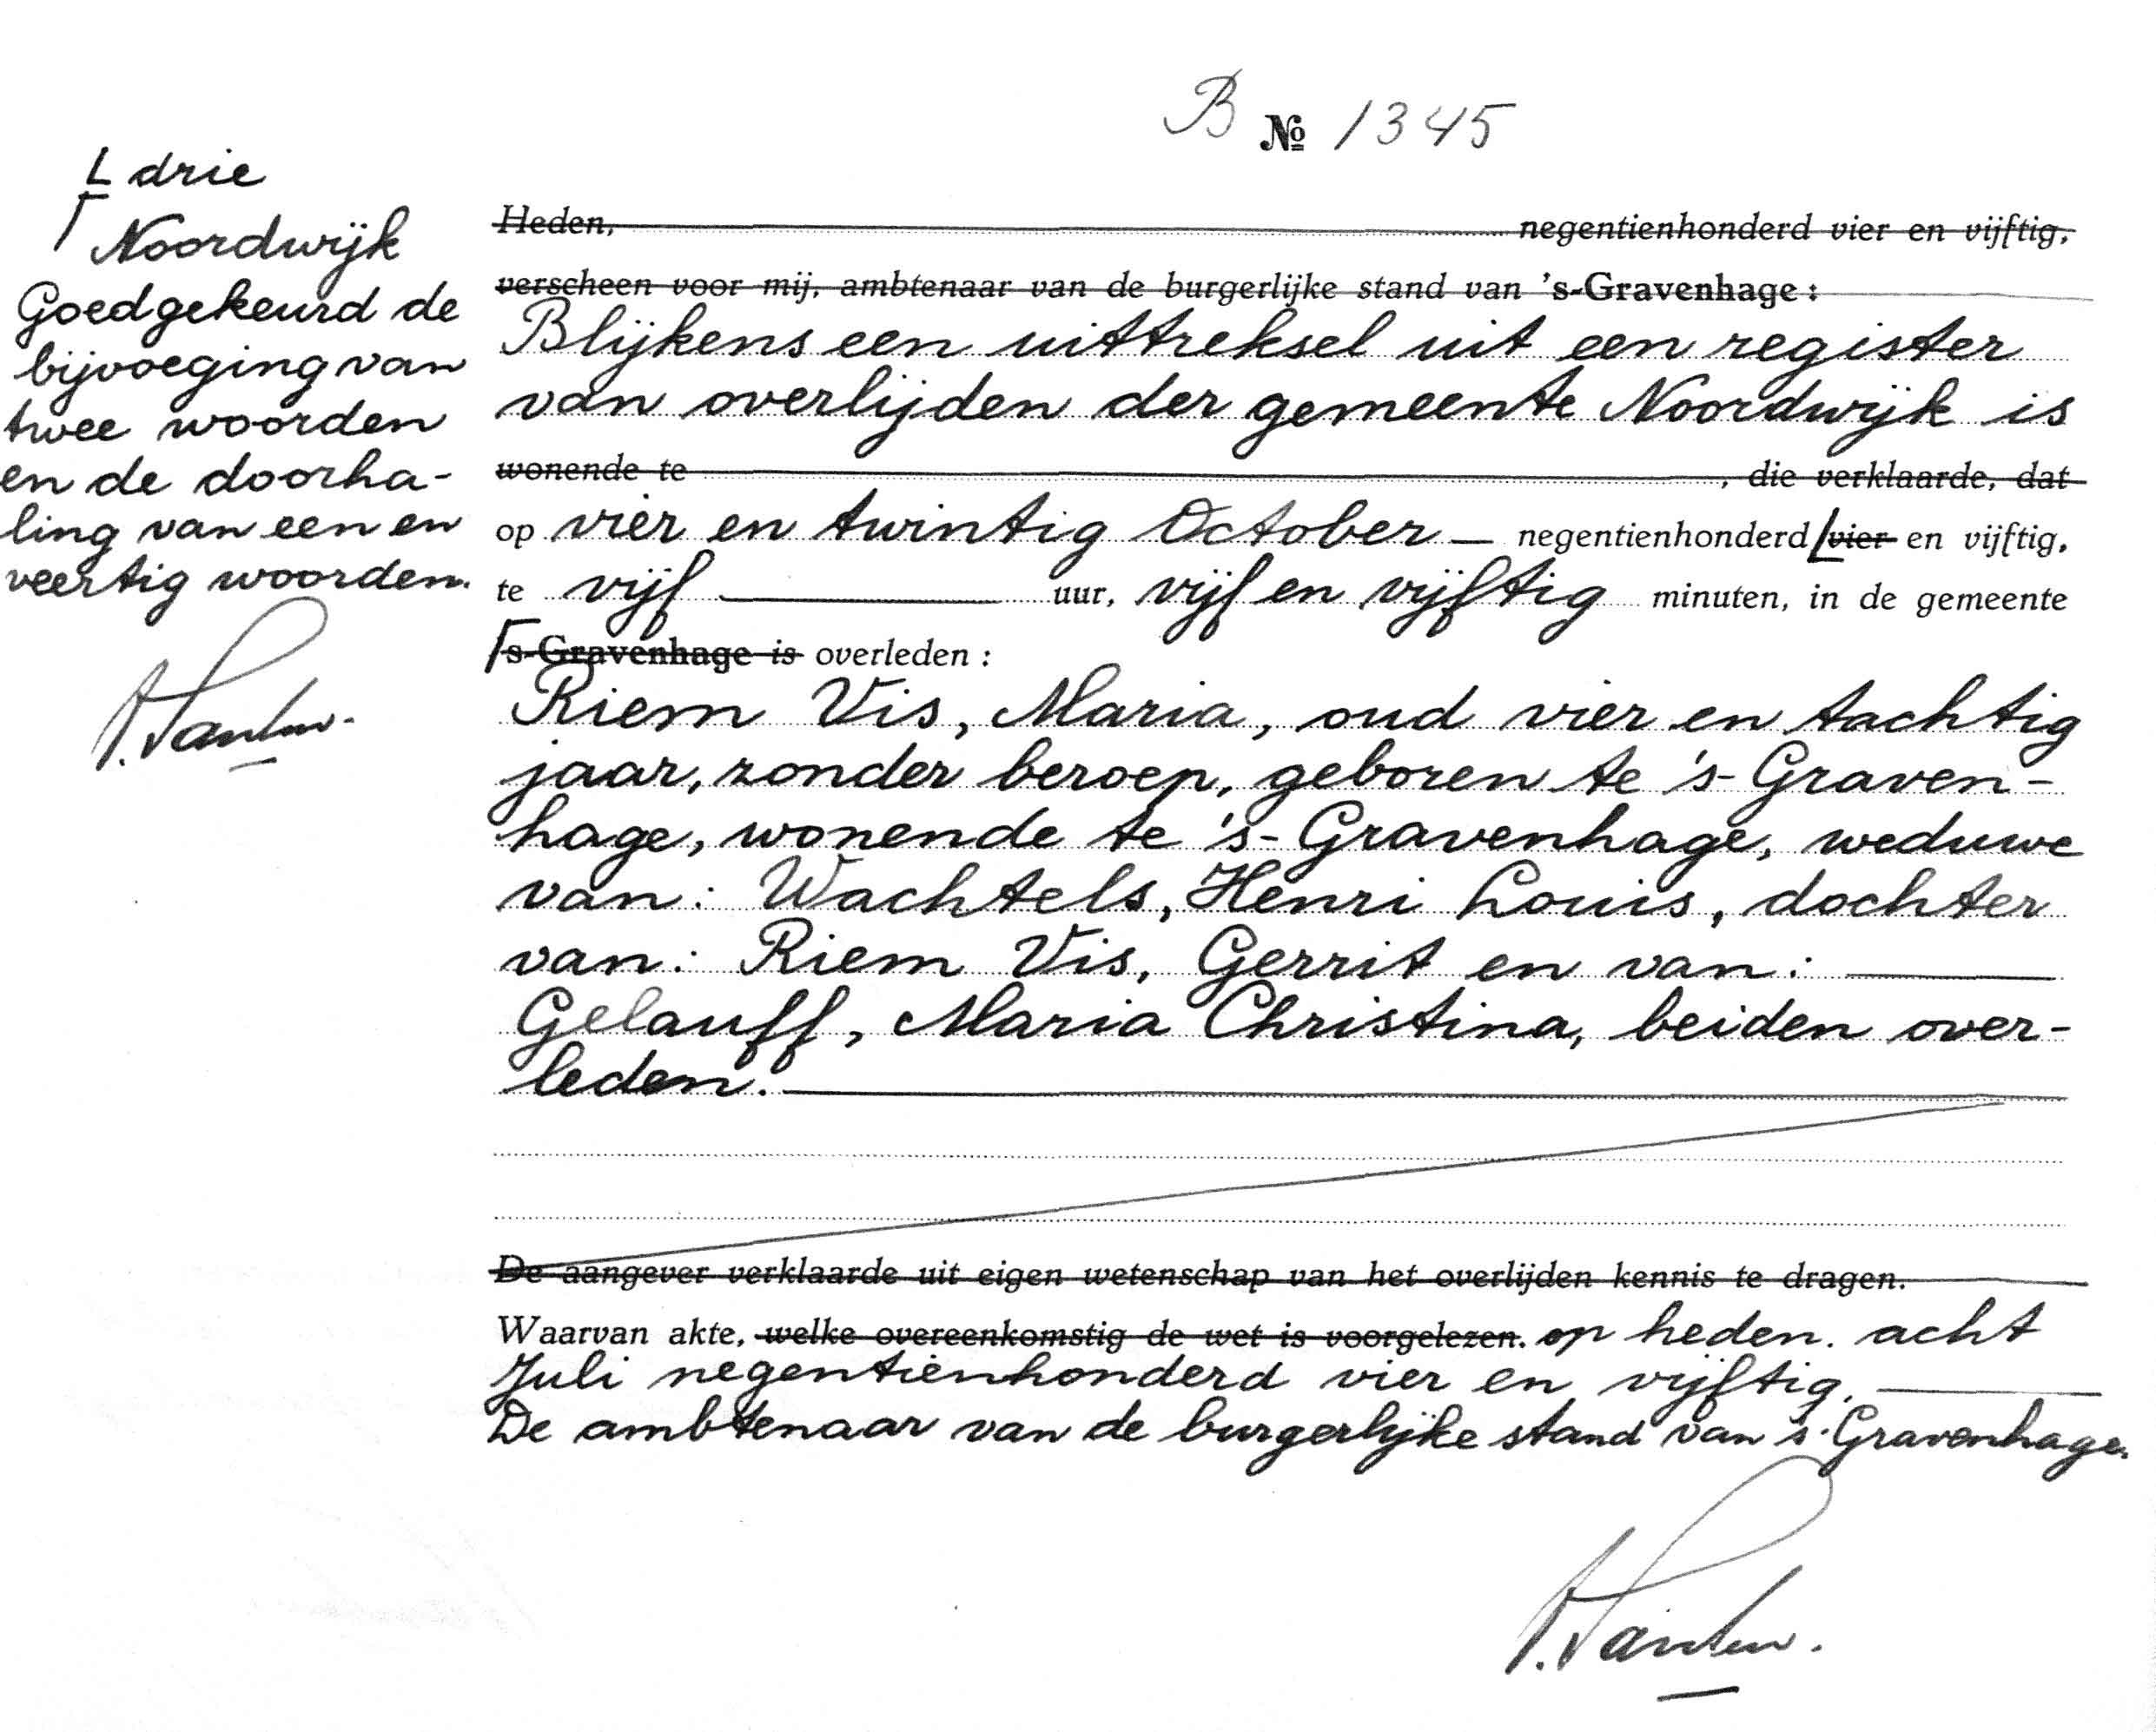 B № 1345
L drie
Γ Noordwijk
Goedgekeurd de
bijvoeging van
twee woorden
en de doorha-
ling van een en
veertig woorden.
Heden, negentienhonderd vier en vijftig,
verscheen voor mij, ambtenaar van de burgerlijke stand van 's-Gravenhage:
Blijkens een uittreksel uit een register
van overlijden der gemeente Noordwijk is
wonende te , die verklaarde, dat
op vier en twintig October — negentienhonderd L vier en vijftig,
te vijf — uur, vijf en vijftig minuten, in de gemeente
Γ 's-Gravenhage is overleden:
Riem Vis, Maria, oud vier en tachtig
jaar, zonder beroep, geboren te 's-Graven-
hage, wonende te 's-Gravenhage, weduwe
van: Wachtels, Henri Louis, dochter
van: Riem Vis, Gerrit en van: —
Gelauff, Maria Christina, beiden over-
leden. —
De aangever verklaarde uit eigen wetenschap van het overlijden kennis te dragen.
Waarvan akte, welke overeenkomstig de wet is voorgelezen. op heden. acht
Juli negentienhonderd vier en vijftig. —
De ambtenaar van de burgerlijke stand van 's-Gravenhage.